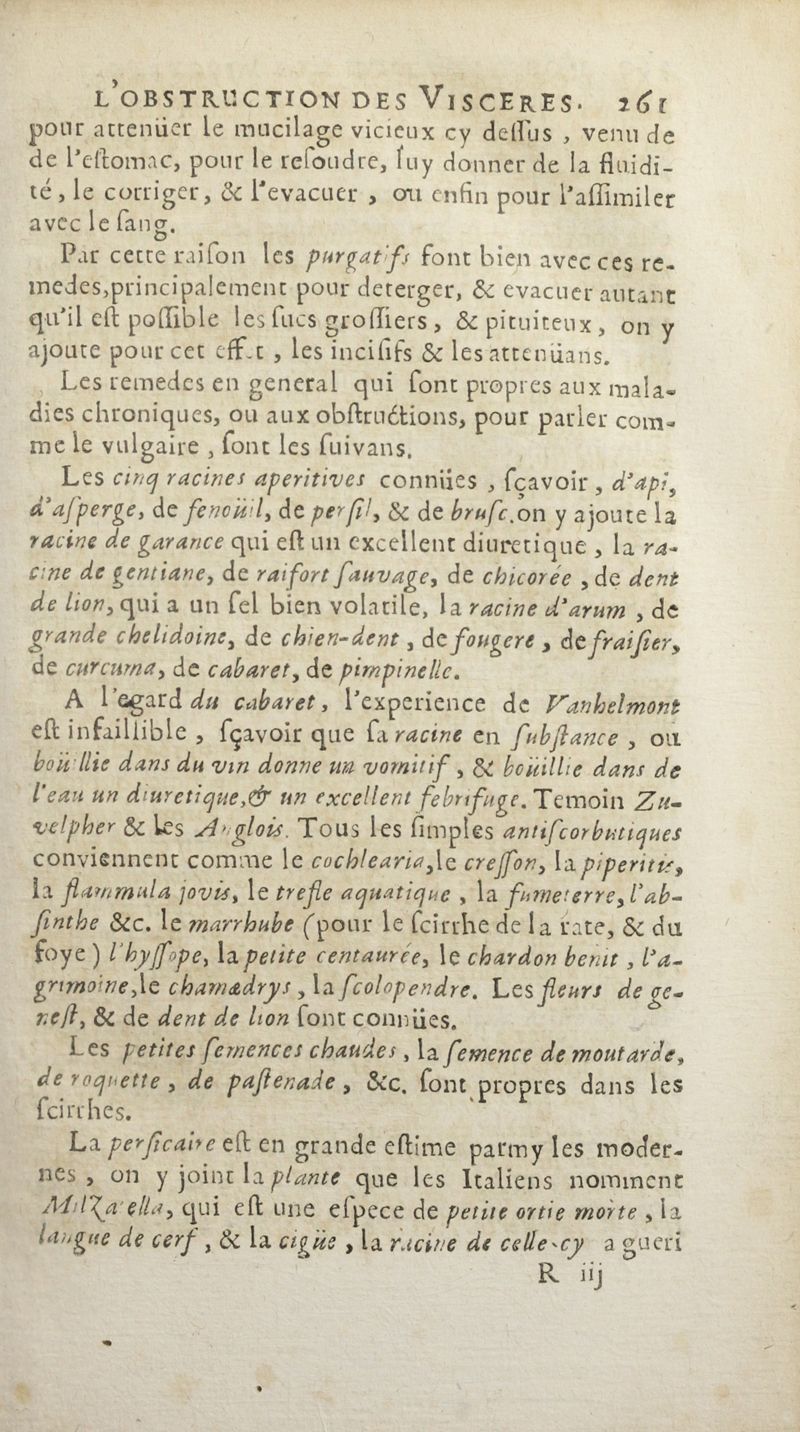 L'OBSTRUCTION DES VISCERES. 261
pour attenüer le mucilage vicieux cy deſſus , venu de
de l'eſtomac, pour le reſoudre, luy donner de la fluidi-
té, le corriger, & l'evacuer , ou enfin pour l'aſſimiler
avec le ſang.
Par cette raiſon les purgatifs font bien avec ces re-
medes,principalement pour deterger, & evacuer autant
qu'il eſt poſſible les ſucs groſſiers, & pituiteux, on y
ajoute pour cet eff.t , les inciſifs & les attenüans.
Les remedes en general qui ſont propres aux mala-
dies chroniques, ou aux obſtructions, pour parler com-
me le vulgaire , ſont les ſuivans.
Les cinq racines aperitives connües , ſçavoir , d'api,
d'aſperge, de fenoüil, de perſil, & de bruſc.on y ajoute la
racine de garance qui eſt un excellent diuretique , la ra-
cine de gentiane, de raifort ſauvage, de chicorée , de dent
de lion, qui a un ſel bien volatile, la racine d'arum , de
grande chelidoine, de chien-dent , de fougere , de fraiſier,
de curcuma, de cabaret, de pimpinelle.
A l'egard du cabaret, l'experience de Vanhelmont
eſt infaillible , ſçavoir que ſa racine en ſubſtance , ou
boüillie dans du vin donne un vomitif , & boüillie dans de
l'eau un diuretique,& un excellent febrifuge. Temoin Zu-
velpher & les Anglois. Tous les ſimples antiſcorbutiques
conviennent comme le cochlearia,le creſſon, la piperitis,
la flammula jovis, le trefle aquatique , la fumeterre, l'ab-
ſinthe &c. le marrhube (pour le ſcirrhe de la rate, & du
foye ) l'hyſſope, la petite centaurée, le chardon benit , l'a-
grimoine,le chamædrys , la ſcolopendre. Les fleurs de ge-
neſt, & de dent de lion ſont connües.
Les petites ſemences chaudes , la ſemence de moutarde,
de roquette , de paſtenade , &c. ſont propres dans les
ſcirrhes.
La perſicaire eſt en grande eſtime parmy les moder-
nes , on y joint la plante que les Italiens nomment
Milza'ella, qui eſt une eſpece de petite ortie morte , la
langue de cerf , & la cigüe , la racine de celle-cy a gueri
R iij